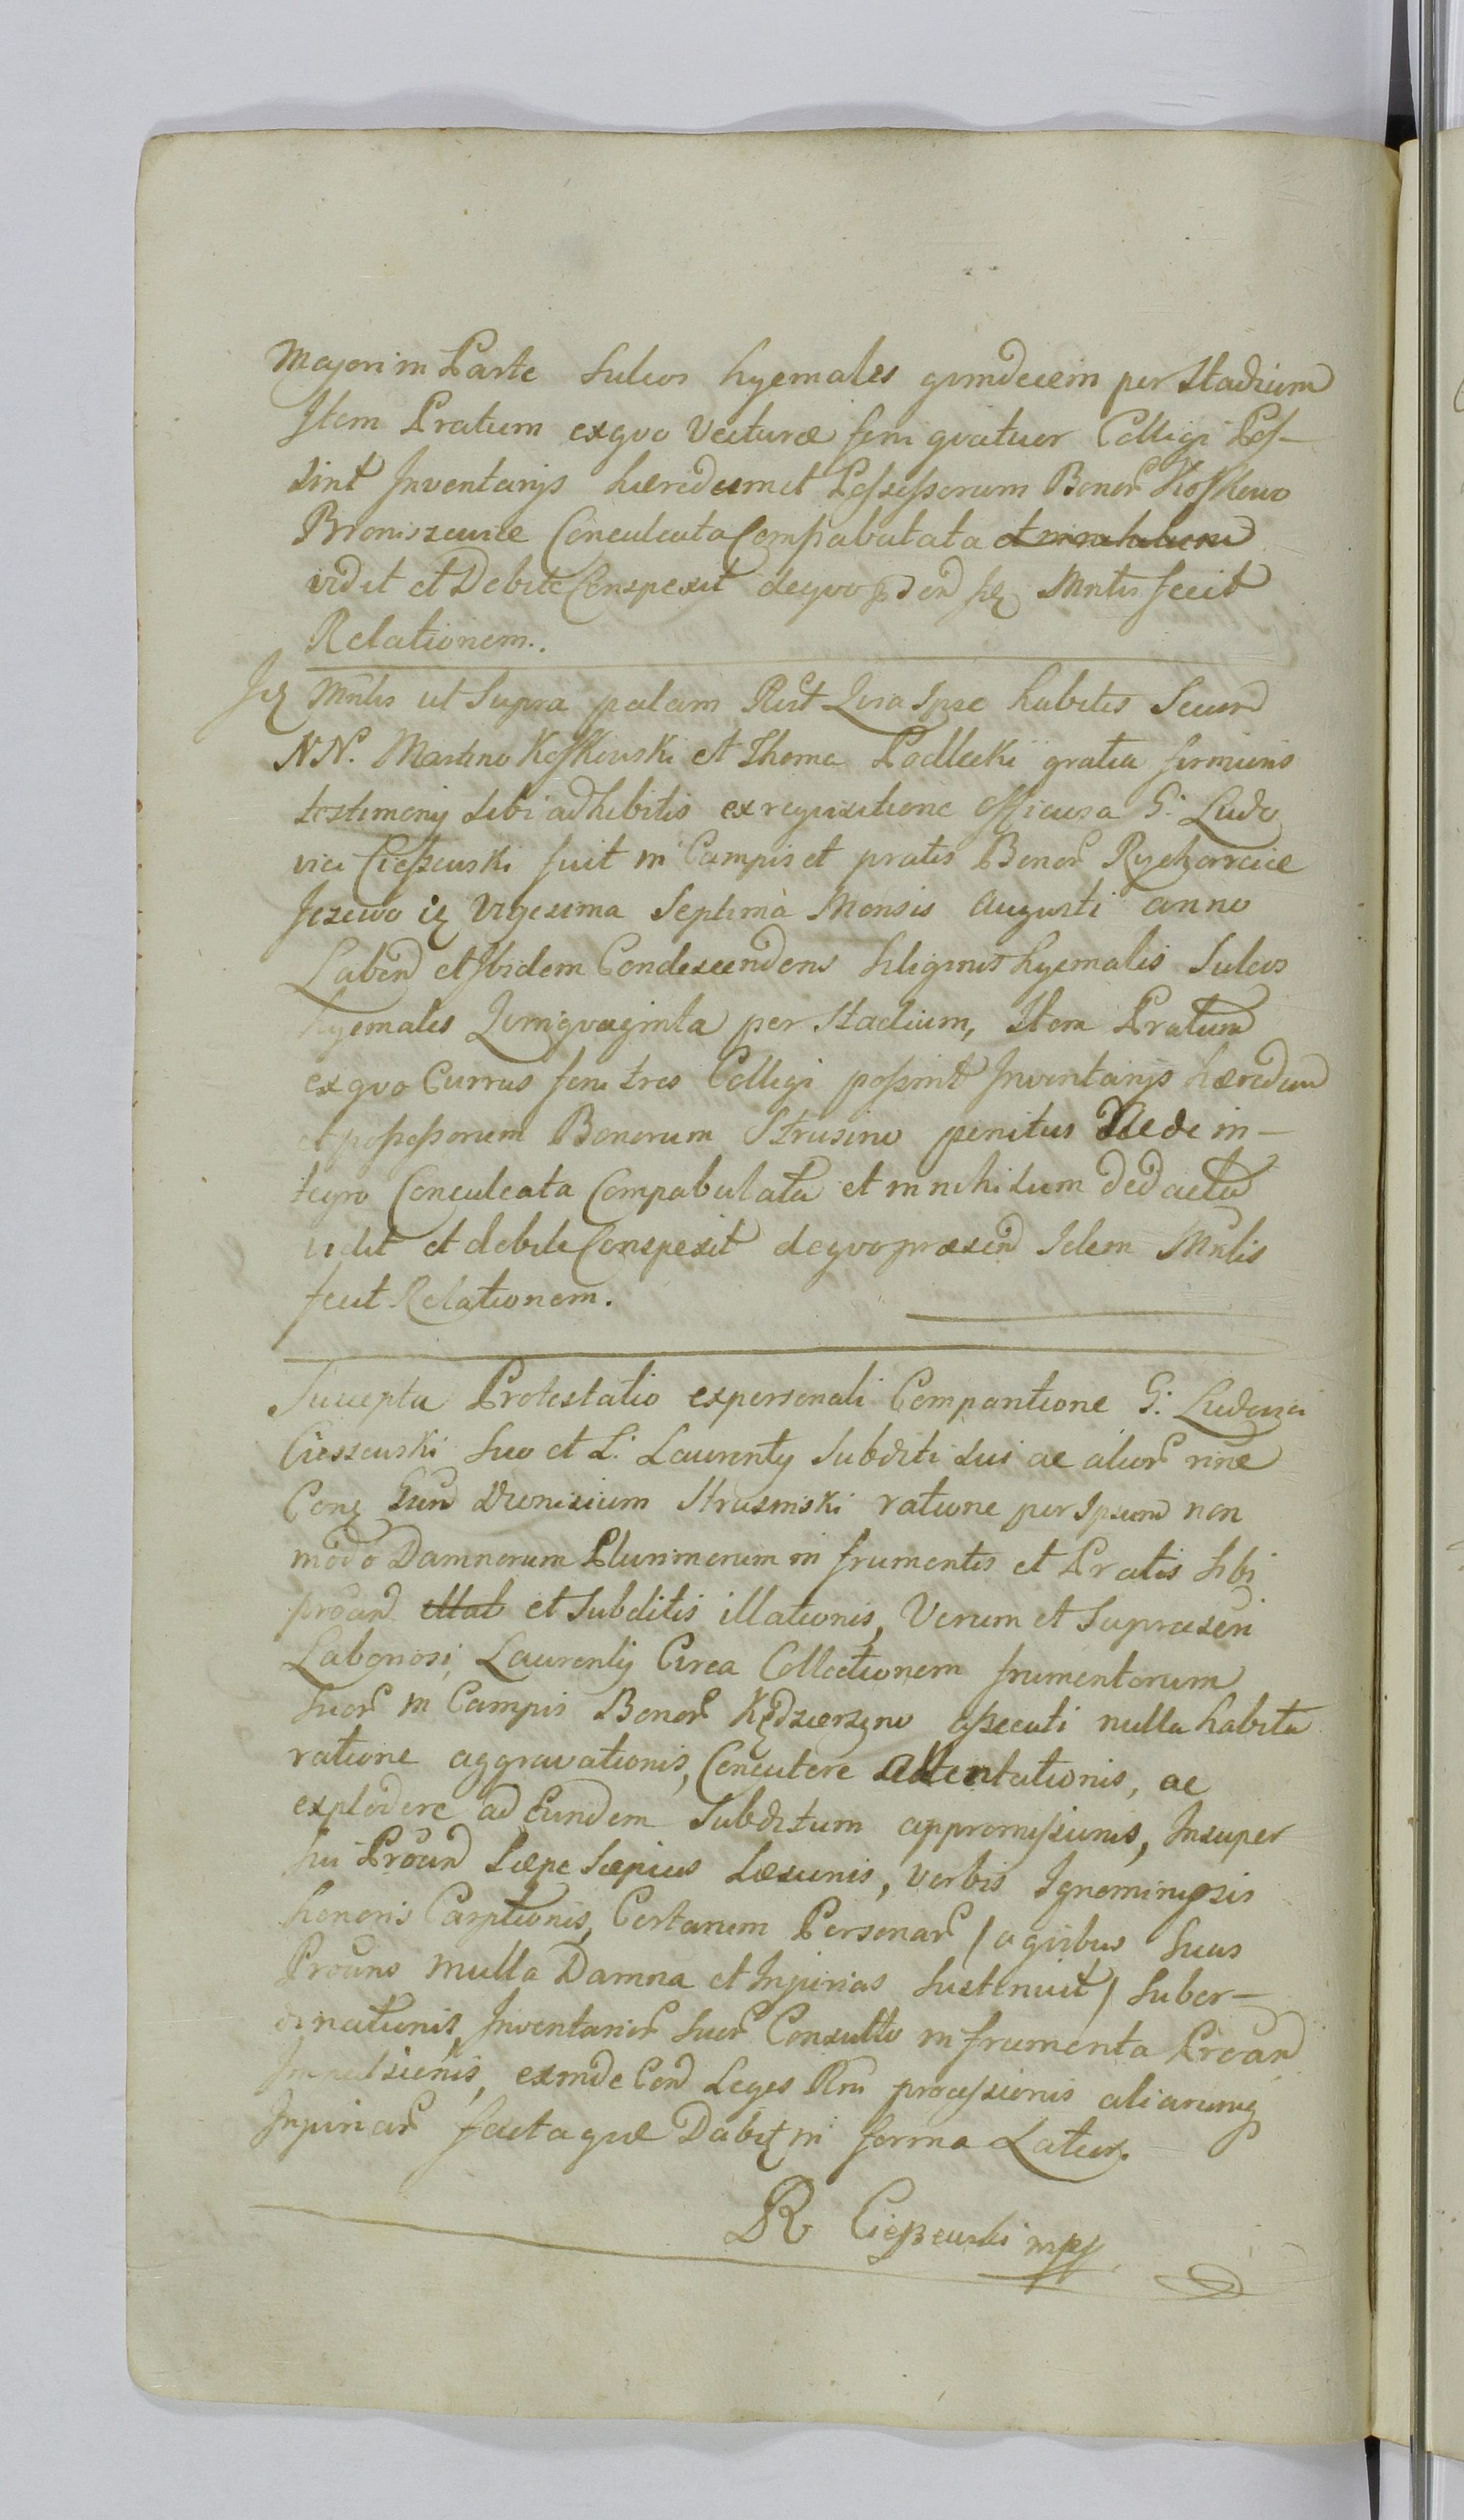 Majori in Parte Sulcos hyemales quindecem per Stadium
Item Pratum exquo Vecturæ feni quatuor Colligi Pos-
sint Inventarijs hæredum et Possessorum Bonor Koskowo
Broniszewice Conculcata Compabulata et in nihilum
vidit et Debite Conspexit dequo Mnlis fecit
Relationem.
Mnlis ut Supra palam Rlt Quia Ipse habitis Secum
NN. Martino Koskowski et Thoma Podlecki gratia firmioris
testimonij sibi adhibitis ex requisitione officiosa G: Ludo
vici Cieszewski fuit in Campis et pratis Bonor
Jezewo Vigesima Septimà Mensis Augusti anno
Laben et Ibidem Condescendens siliginis hyemalis Sulcos
hyemales Quinquaginta per Stadium, Item Pratum
exquo Currus feni tres Colligi possint Inventarijs hæredum
et possessorum Bonorum Strusino penitus et de in-
tegro Conculcata Compabulata et in nihilum dedacta
vidit et debite Conspexit dequo præsen Idem Mnlis
fecit Relationem.
Suscepta Protestatio expersonali Comparitione G: Ludovici
Cieszewski suo et L: Laurentij Subditi sui ac alior nine
Con Gnm Dionisium Strusinski ratione per Ipsum non
modo Damnorum Plurimorum in frumentis et Pratis sibi
proan illat et Subditis illationis, Verum et Supræscri
Laboriosi Laurentij Circa Collectionem frumentorum
suor in Campis Bonor Kędzierzyno assecuti nulla habita
ratione aggravationis, Concutere attentationis, ac
explodere ad Eundem Subditum appromissionis, Insuper
sui Proan Sæpe Sæpius Læsionis, verbis Ignominiosis
honoris Carptionis, Certarum Personar / a quibus suas
Proans multa Damna et Injurias Sustinuit / Subor-
dinationis, Inventarior suor Consulto in frumenta Proan
Impulsionis, exinde Con Leges Rni processionis aliarumq
Injuriar facta quæ Dabit in forma Latior.
R Cieszewski mpp